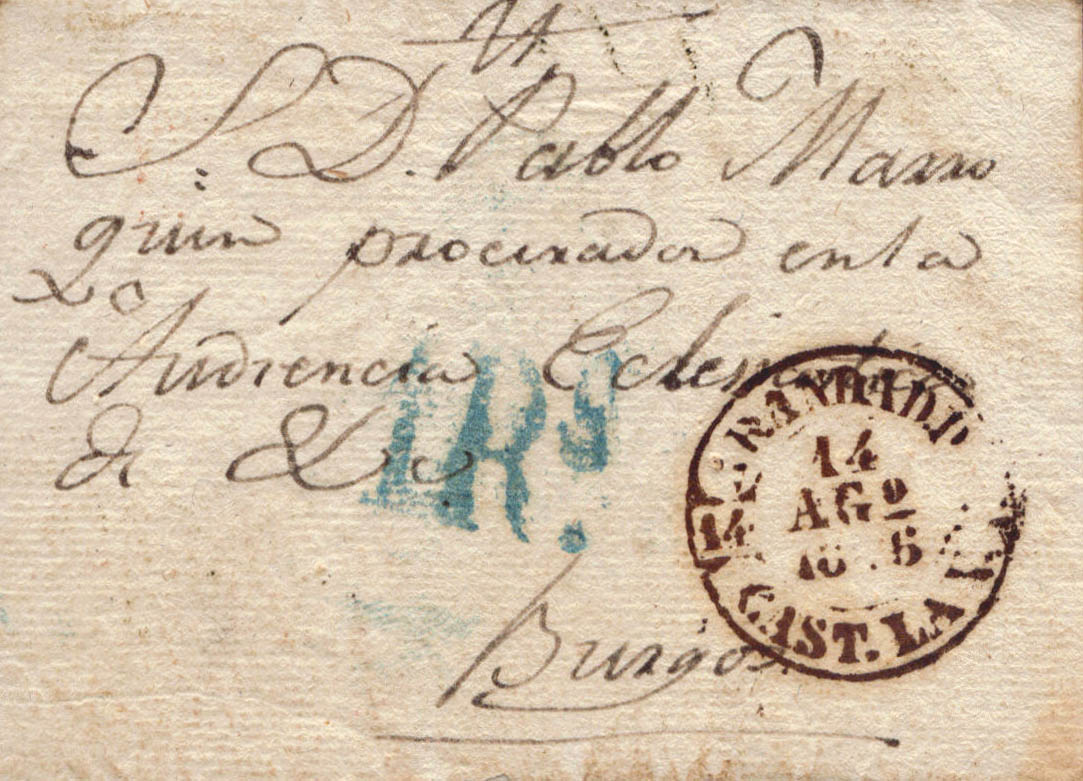 S. D. Pablo Marro
quin procurador en la
Audiencia Eclesiastica
de &c
Burgos
1Rl.
ARANDA D. D.
14
AGO
18 6
14
CAST. LA V.